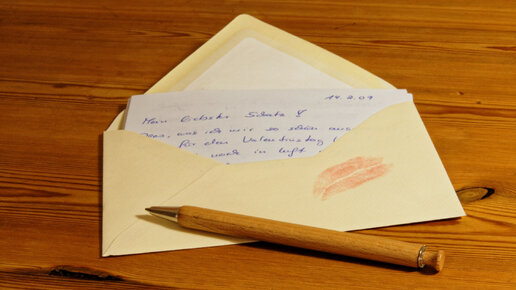 14.2.09
Mein liebster Schatz
was ich mir so schön
Für den Valentinstag
wurde in Luft